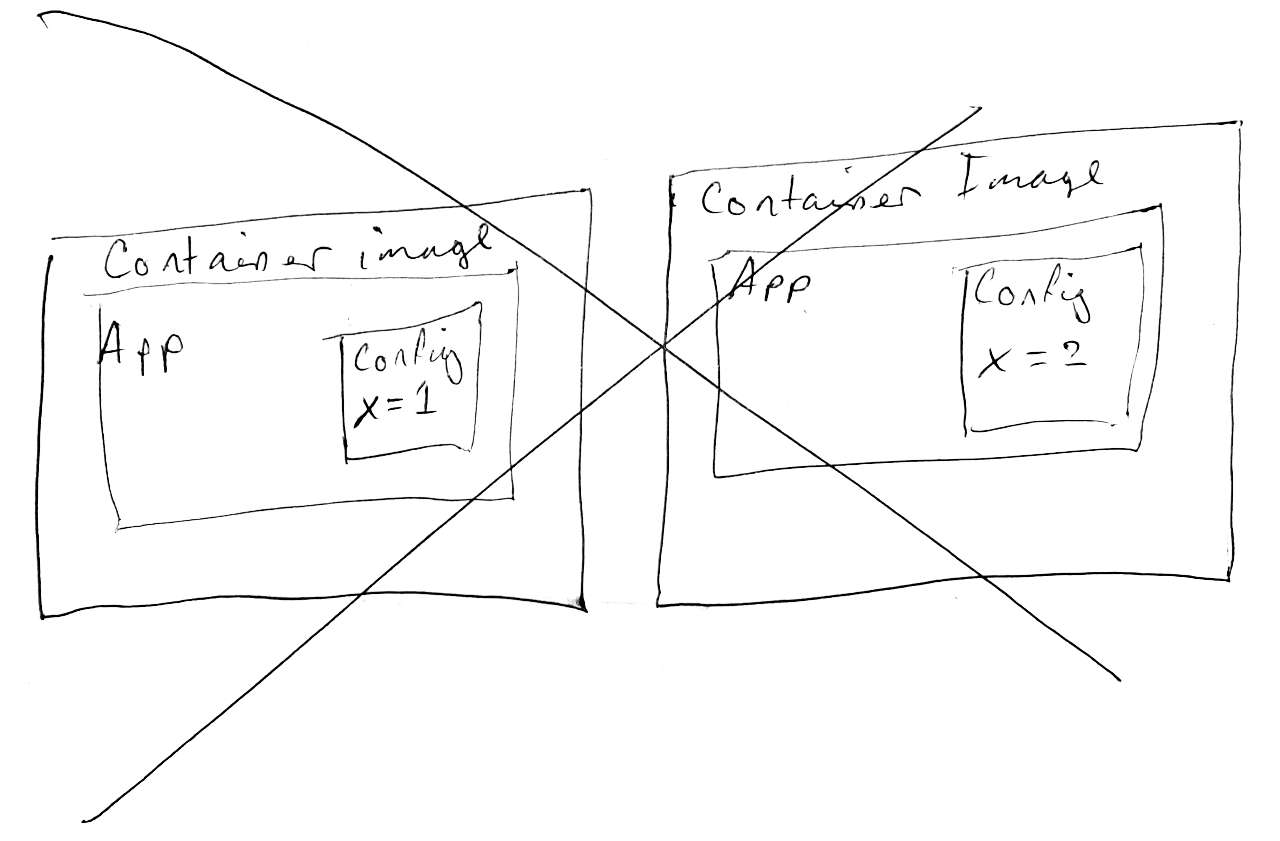 Container image
App
Config
x = 1
Container Image
App
Config
x = 2